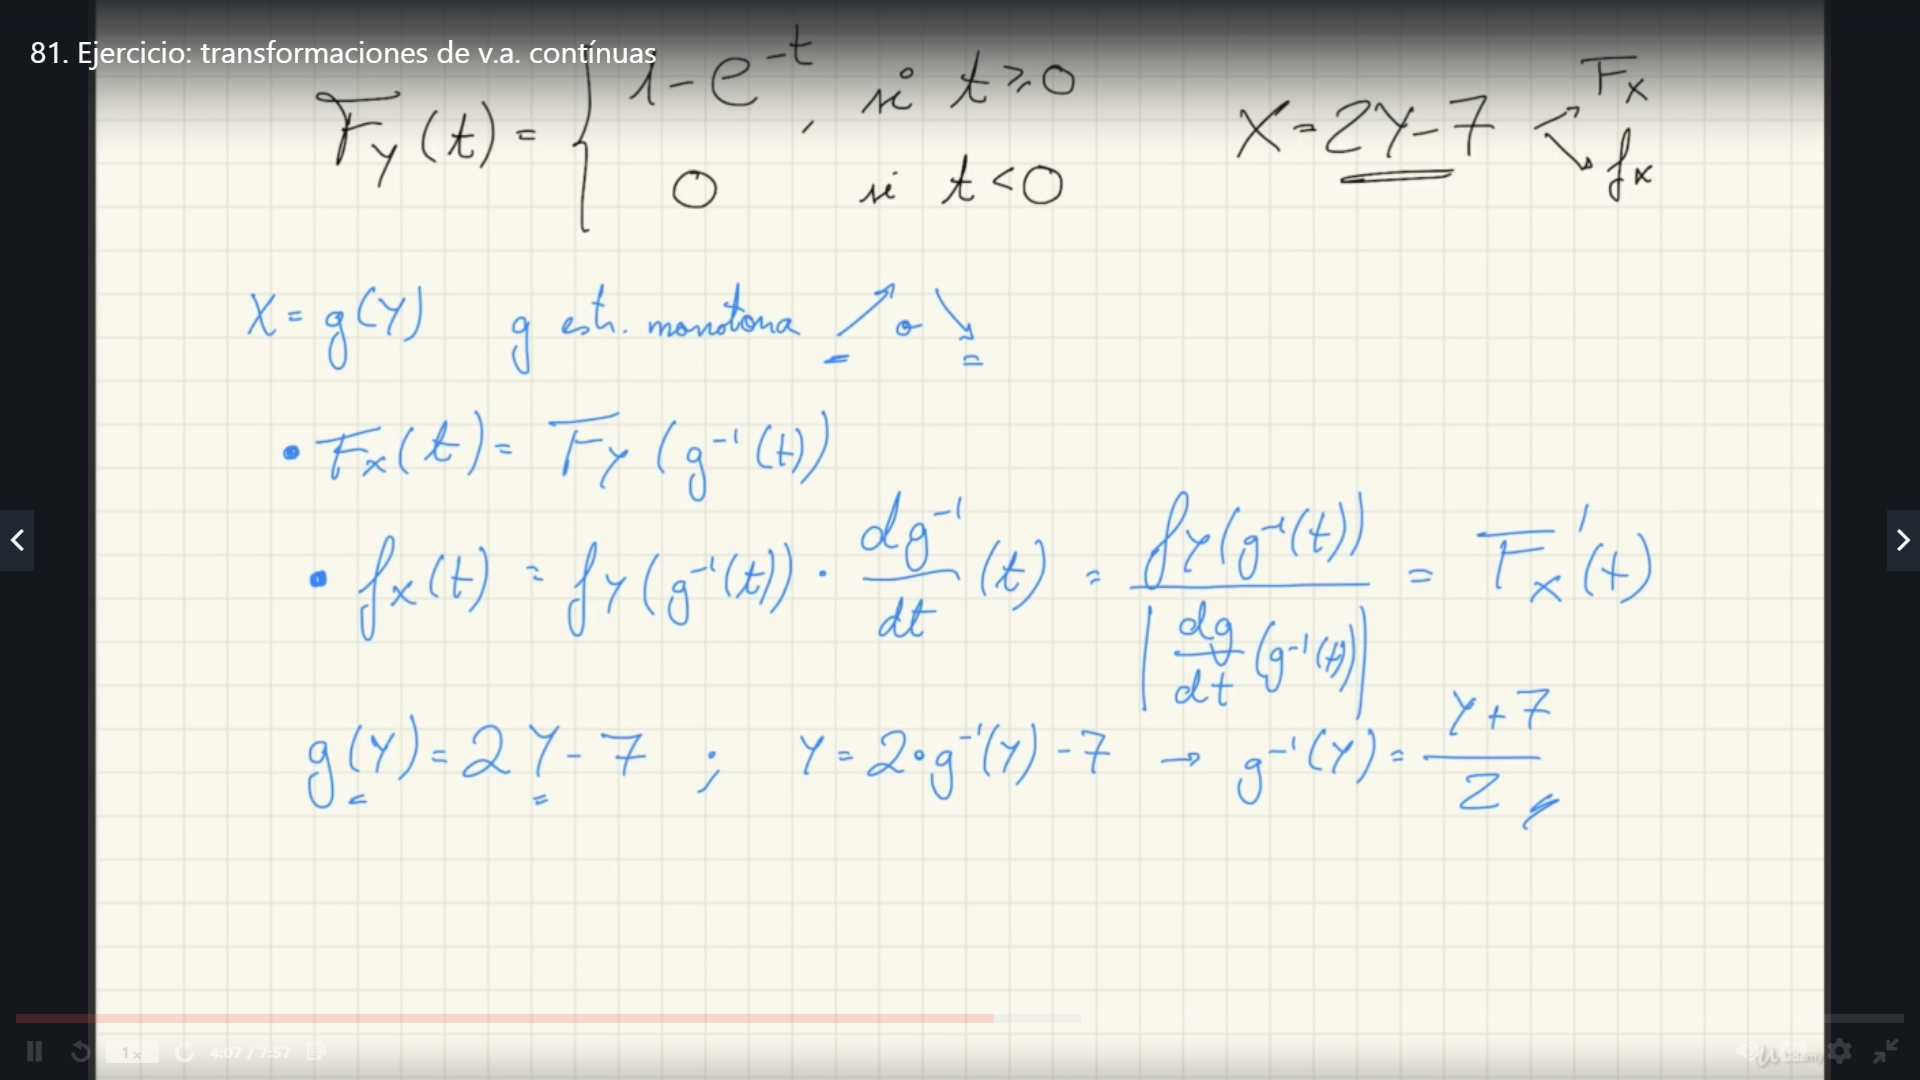 81. Ejercicio: transformaciones de v.a. contínuas
F_Y(t) = { 1 - e^{-t}, si t ≥ 0
0 si t < 0
X = 2Y - 7 < F_X
f_X
X = g(Y) g estr. monotona ↗ o ↘
• F_X(t) = F_Y(g^{-1}(t))
• f_X(t) = f_Y(g^{-1}(t)) · dg^{-1}/dt (t) = f_Y(g^{-1}(t)) / |dg/dt (g^{-1}(t))| = F_X'(t)
g(Y) = 2Y - 7 ; Y = 2·g^{-1}(Y) - 7 → g^{-1}(Y) = (Y + 7)/2
1x
4:07 / 7:57